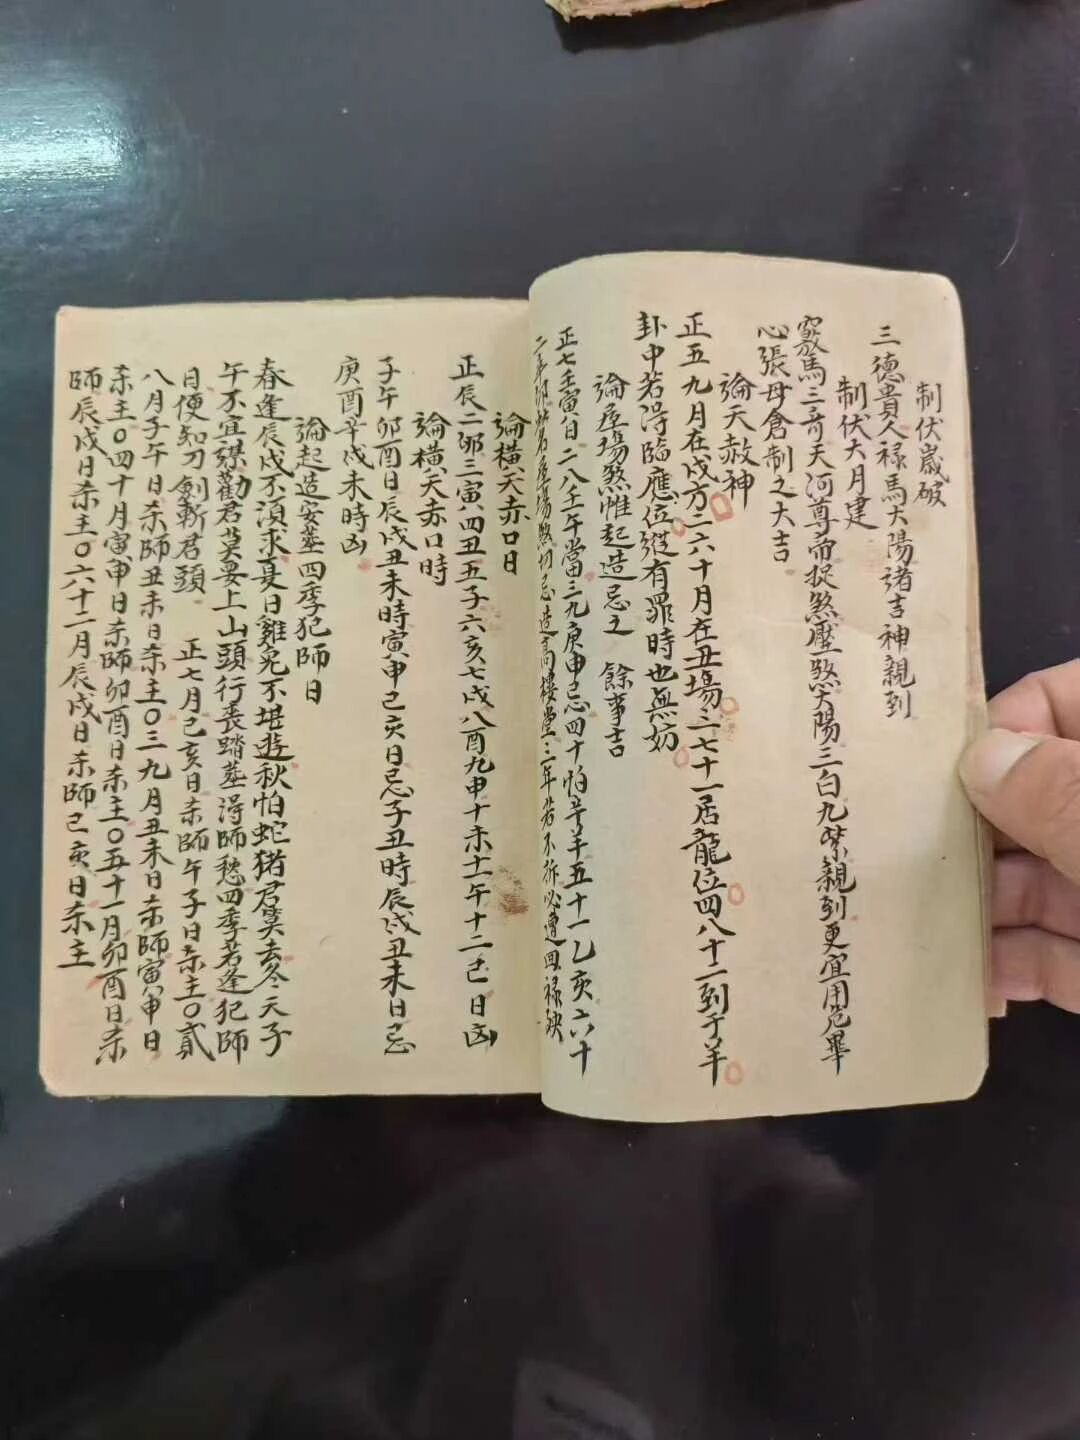 制伏歲破
三德貴人祿馬太陽諸吉神親到
制伏大月建
竅馬三奇天河尊帝捉煞壓煞太陽三白九紫親到更宜用危畢
心張母倉制之大吉
論天赦神
正五九月在戌方二六十月在丑場三七十一居龍位四八十二到于羊
卦中若得臨應位縱有罪時也無妨
論屋場煞惟起造忌之 餘事吉
正七壬寅八日二八壬午當三九庚申忌四十怕羊五十一乙亥六十
二辛卯屋場煞切忌造高樓堂三年若不拆必遭回祿殃
論橫天赤口日
正辰二卯三寅四丑五子六亥七戌八酉九申十未十一午十二巳日凶
論橫天赤口時
子午卯酉日辰戌丑未時寅申巳亥日忌子丑時辰戌丑未日忌
庚酉辛戌未時凶
論起造安葬四季犯師日
春逢辰戌不須求夏日雞兔不堪遊秋怕蛇猪君莫去冬天子
午不宜謀勸君莫妄上山頭行喪踏葬得師愁四季若逢犯師
日便知刀劍斬君頭 正七月巳亥日杀師午子日杀主〇貳
八月子午日杀師丑未日杀主〇三九月丑未日杀師寅申日
杀主〇四十月寅申日杀師卯酉日杀主〇五十一月卯酉日杀
師辰戌日杀主〇六十二月辰戌日杀師巳亥日杀主